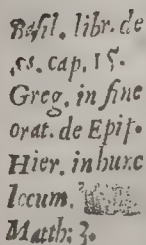 Basil. libr. de
ss. cap. 15.
Greg. in fine
orat. de Epip.
Hier. in hunc
locum.
Matth: 3.